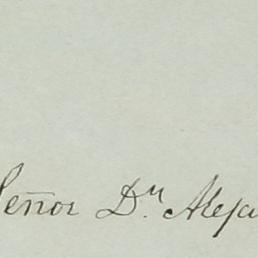 Señor Dn. Aleja